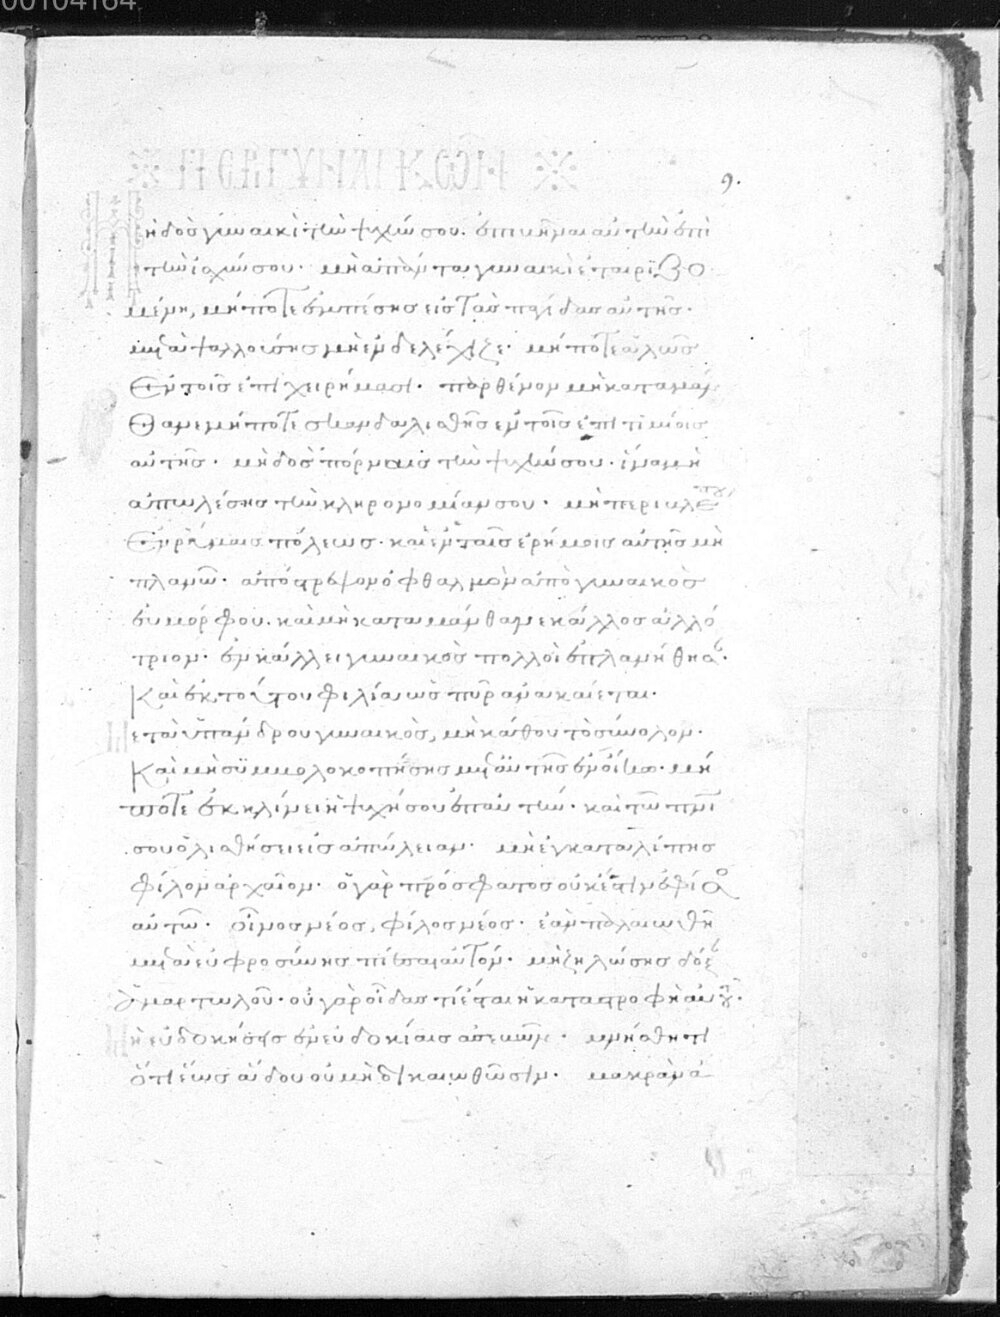 00104164
9.
Μὴ δὸς γυναικὶ τὴν ψυχήν σου. ἐπιβῆναι αὐτὴν ἐπὶ
τὴν ἰσχύν σου. μὴ ἀπάντα γυναικὶ ἑταιριζο
μένη, μήποτε ἐμπέσης εἰς τὰς παγίδας αὐτῆς.
μετὰ ψαλλούσης μὴ ἐνδελέχιζε. μήποτε ἁλῶς
ἐν τοῖς ἐπιχειρήμασι. παρθένον μὴ καταμάν
θανε μήποτε σκανδαλισθῆς ἐν τοῖς ἐπιτιμίοις
αὐτῆς. μὴ δὸς πόρναις τὴν ψυχήν σου. ἵνα μὴ
ἀπωλέσης τὴν κληρονομίαν σου. μὴ περιβλέπου
ἐν ῥύμαις πόλεως. καὶ ἐν ταῖς ἐρήμοις αὐτῆς μὴ
πλανῶ. ἀπόστρεψον ὀφθαλμὸν ἀπὸ γυναικὸς
εὐμόρφου. καὶ μὴ καταμάνθανε κάλλος ἀλλό
τριον. ἐν κάλλει γυναικὸς πολλοὶ ἐπλανήθησαν.
καὶ ἐκ τούτου φιλία ὡς πῦρ ἀνακαίεται.
μετὰ ὑπάνδρου γυναικὸς, μὴ κάθου τὸ σύνολον.
καὶ μὴ συμβολοκοπήσης μετ' αὐτῆς ἐν οἴνω. μή
ποτε ἐκκλίνει ἡ ψυχή σου ἐπ' αὐτήν. καὶ τῶ πνι
σου ὀλισθήσει εἰς ἀπώλειαν. μὴ ἐγκαταλίπης
φίλον ἀρχαῖον. ὁ γὰρ πρόσφατος οὐκ ἔστιν ἔφισος
αὐτῶ. οἶνος νέος, φίλος νέος. ἐὰν παλαιωθῆ
μετ' εὐφροσύνης πίεσαι αὐτόν. μὴ ζηλώσης δόξαν
ἁμαρτωλοῦ. οὐ γὰρ οἶδας τί ἔσται ἡ καταστροφὴ αὐτοῦ.
μὴ εὐδοκήσης ἐν εὐδοκίαις ἀσεβῶν. μνήσθητι
ὅτι ἕως ἅδου οὐ μὴ δικαιωθῶσιν. μακρὰν ἀ